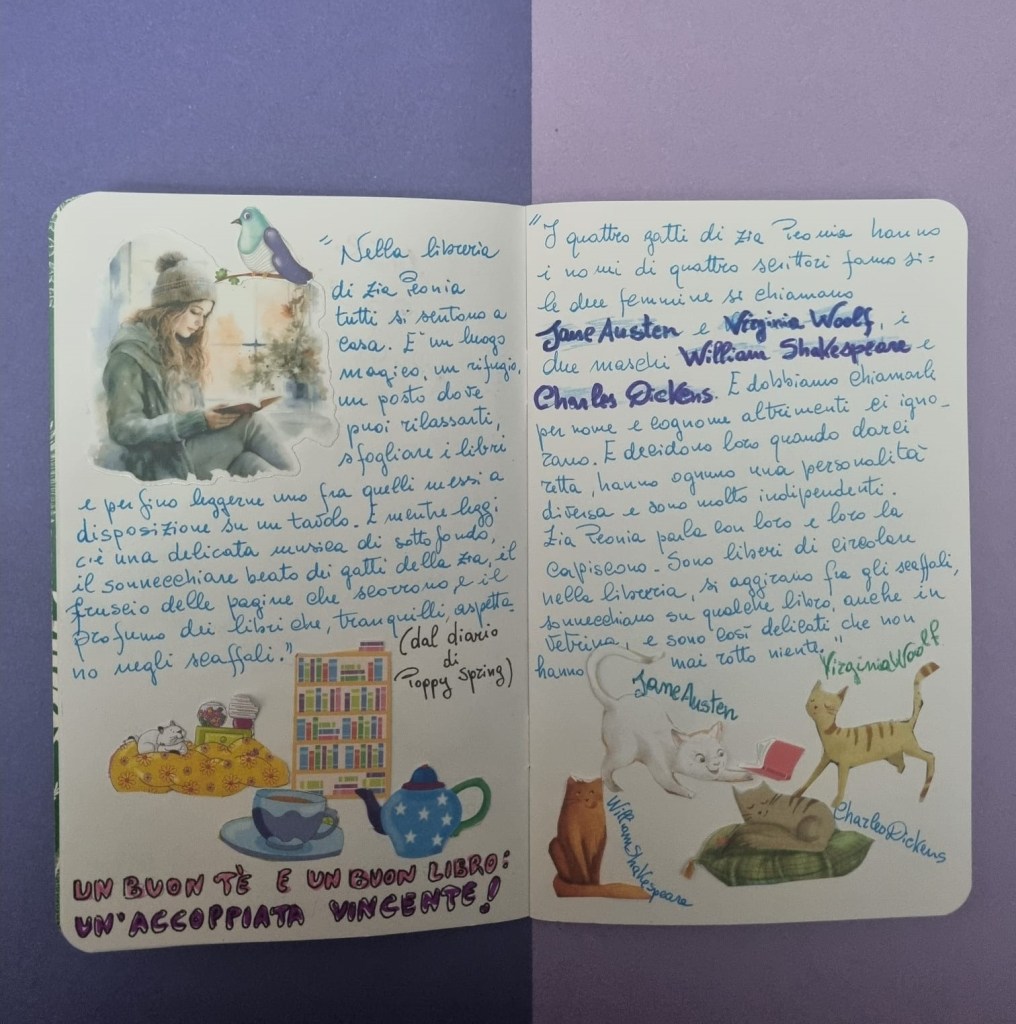 "Nella libreria
di zia Peonia
tutti si sentono a
casa. E' un luogo
magico, un rifugio,
un posto dove
puoi rilassarti,
sfogliare i libri
e perfino leggerne uno fra quelli messi a
disposizione su un tavolo. E mentre leggi
c'è una delicata musica di sottofondo,
il sonnecchiare beato dei gatti della zia, il
fruscio delle pagine che scorrono e il
profumo dei libri che, tranquilli, aspetta-
no negli scaffali."
(dal diario
di
Poppy Spring)
UN BUON TÈ E UN BUON LIBRO:
UN'ACCOPPIATA VINCENTE!
"I quattro gatti di zia Peonia hanno
i nomi di quattro scrittori famosi=
le due femmine si chiamano
Jane Austen e Virginia Woolf, i
due maschi William Shakespeare e
Charles Dickens. E dobbiamo chiamarli
per nome e cognome altrimenti ci igno-
rano. E decidono loro quando darci
retta, hanno ognuno una personalità
diversa e sono molto indipendenti.
Zia Peonia parla con loro e loro la
capiscono. Sono liberi di circolare
nella libreria, si aggirano fra gli scaffali,
sonnecchiano su qualche libro, anche in
vetrina, e sono così delicati che non
hanno mai rotto niente."
Jane Austen
Virginia Woolf
William Shakespeare
Charles Dickens